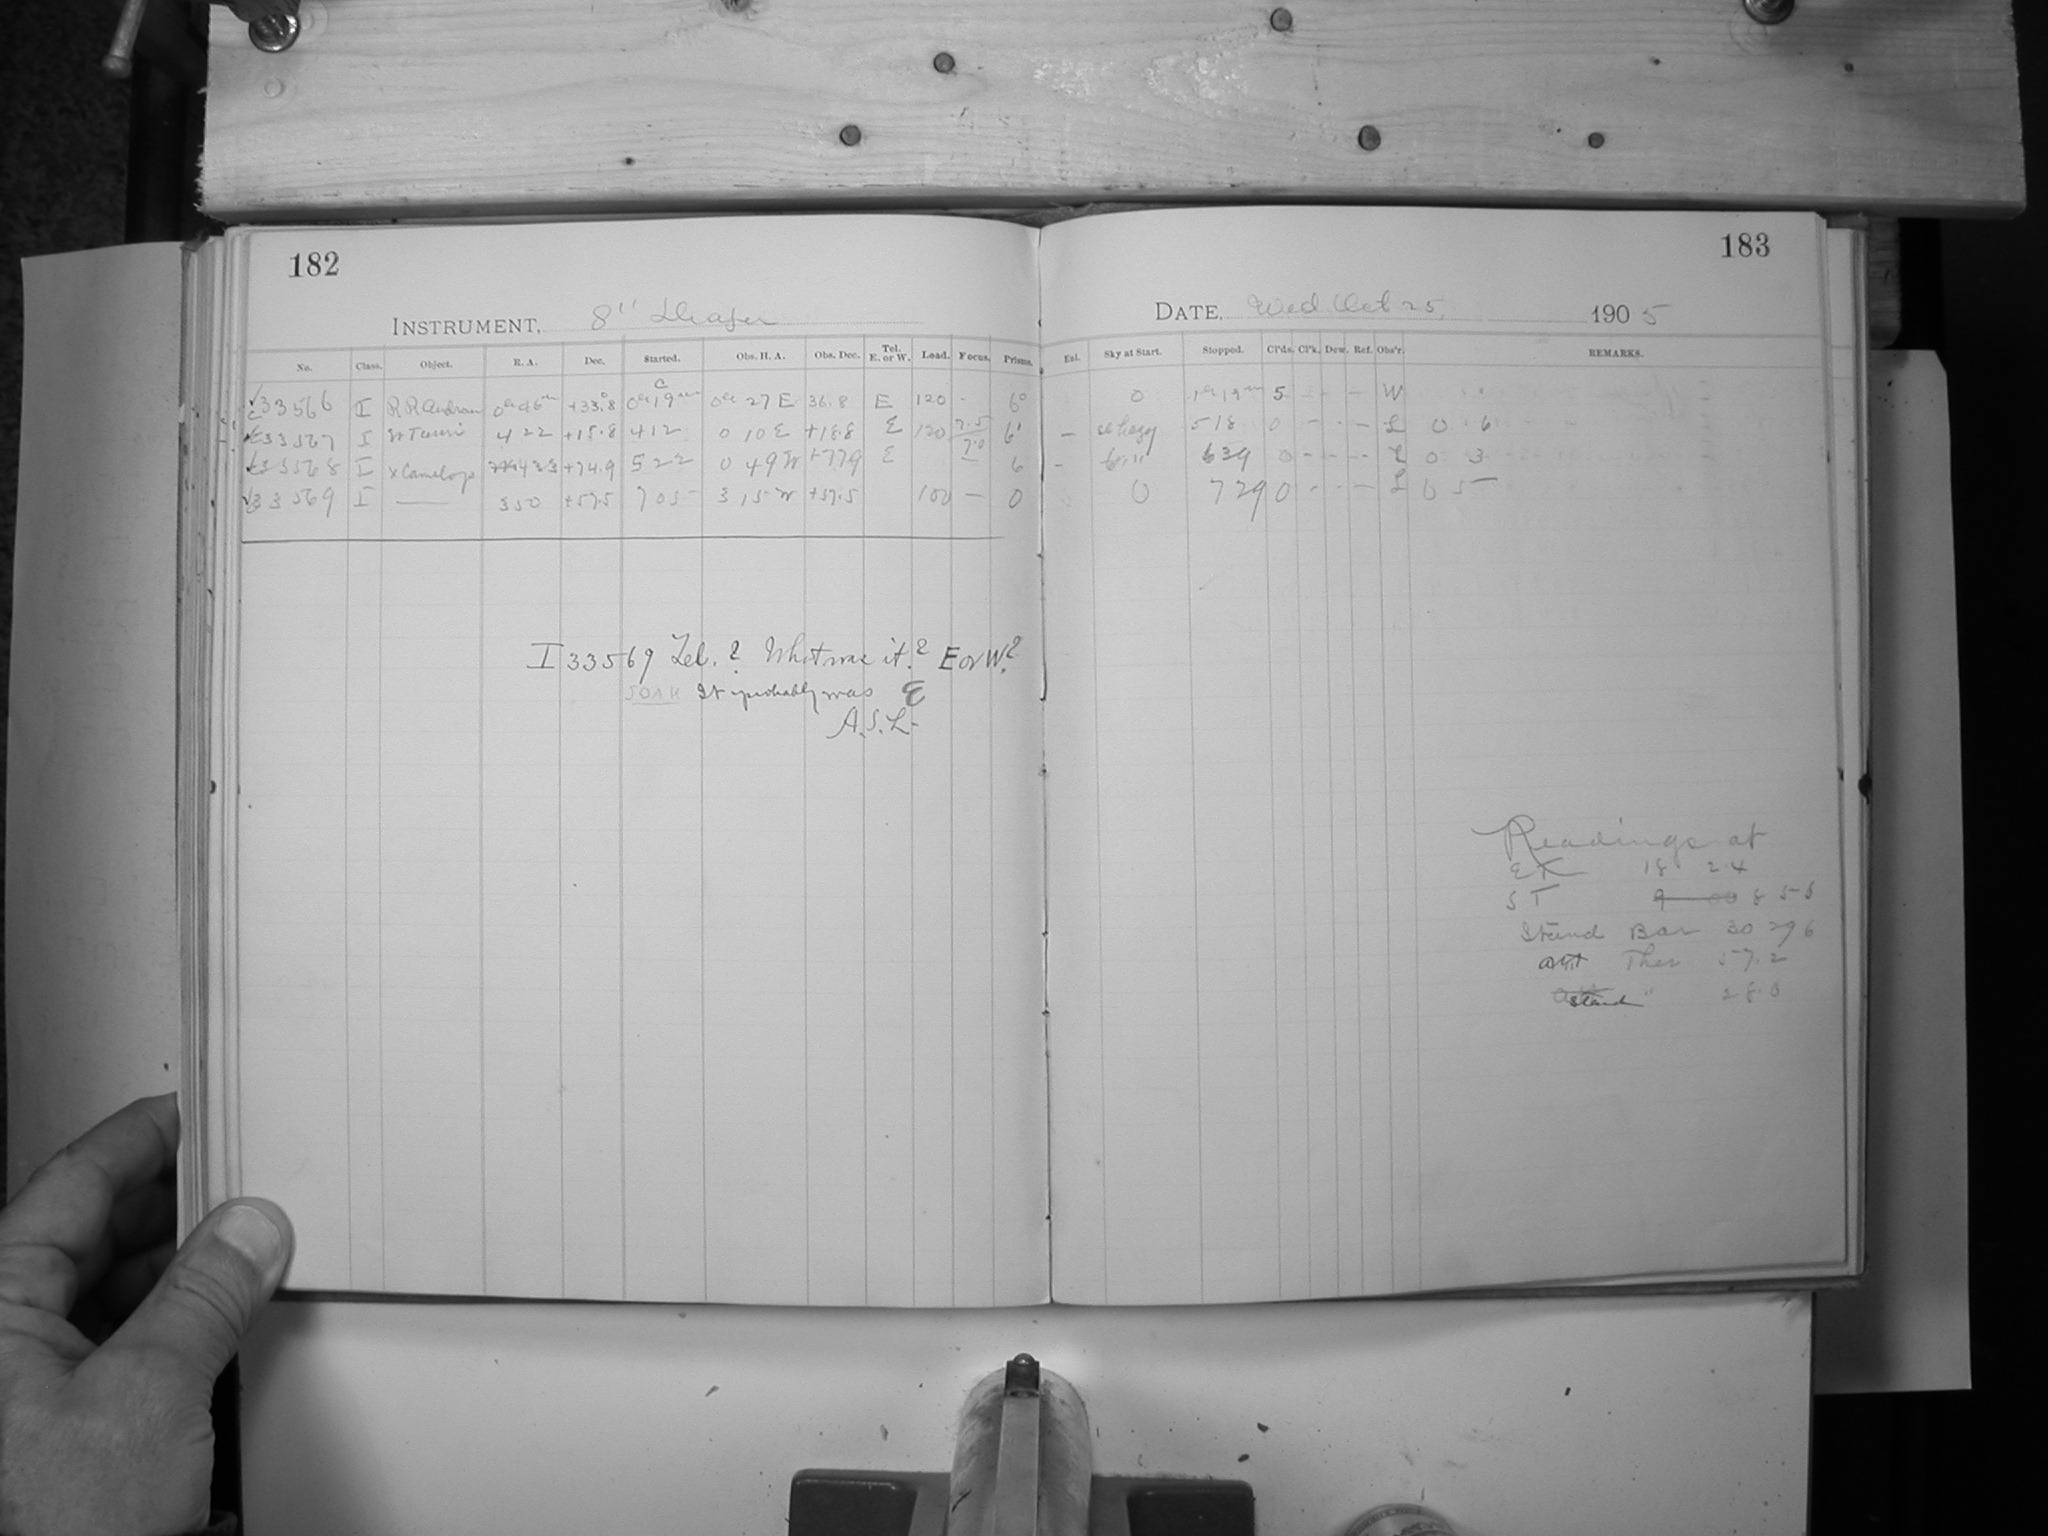 182
183
INSTRUMENT, 8" Draper
DATE, Wed Oct 25, 1905
No. Class. Object. R. A. Dec. Started. Obs. H. A. Obs. Dec. Tel. E. or W. Load. Focus. Prisms. Ext. Sky at Start. Stopped. Cl'ds. Cl'k. Dew. Ref. Obs'r. REMARKS.
33566 I RR Androm 0h 46m +33.8 0h 19m 0h 27 E 36.8 E 120 - 6° 0 1h 19m 5 - - - W
33567 I W Tauri 4 22 +15.8 4 12 0 10 E +18.8 E 120 7.5 7.0 6' - hazy 5 18 0 - - - L 0 6
33568 I X Camelop 4 33 +74.9 5 22 0 49 W +77.9 E - 6 - 6 39 0 - - - L 0 3
33569 I — 3 50 +57.5 7 05 3 15 W +57.5 100 - 0 0 7 29 0 - - - L 0 5
I 33569 Tel. ? What was it? E or W?
It probably was E
A.S.L.
Readings at
18 24
S T 8 56
Stand Bar 30 296
att Ther 57.2
stand " 28.0